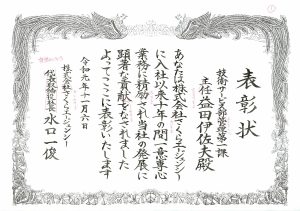 表彰状
技術サービス部管理第一課
主任 益田伊佐夫殿
あなたは株式会社さくらエージェンシー
に入社以来十年の間一意専心
業務に精励され当社の発展に
顕著な貢献をなされました
よってここに表彰いたします
令和元年十一月六日
株式会社さくらエージェンシー
代表取締役 水口一俊